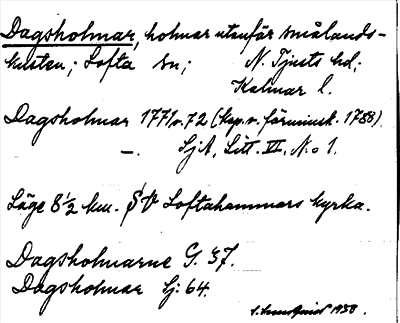 Dagsholmar, holmar utanför smålands-
kusten; Lofta sn; N. Tjusts hd;
Kalmar l.
Dagsholmar 1771 o. 72 (kop. o. förminsk. 1788)
—. SjA, Litt. II, N:o 1.
Läge 8 1/2 km. SV Loftahammars kyrka.
Dagsholmarne G. 37.
Dagsholmar Sj: 64.
1938.